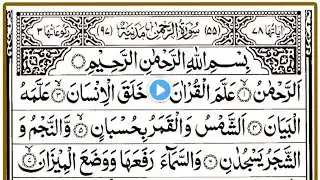 اٰیَاتُهَا ۷۸ (۵۵) سُوْرَةُ الرَّحْمٰنِ مَدَنِیَّةٌ (۹۷) رُكُوْعَاتُهَا ۳
بِسْمِ اللّٰهِ الرَّحْمٰنِ الرَّحِیْمِ
اَلرَّحْمٰنُ ۙ۱ عَلَّمَ الْقُرْاٰنَ ؕ۲ خَلَقَ الْاِنْسَانَ ۙ۳ عَلَّمَهُ
الْبَیَانَ ۴ اَلشَّمْسُ وَ الْقَمَرُ بِحُسْبَانٍ ۪۵ وَّ النَّجْمُ وَ
الشَّجَرُ یَسْجُدٰنِ ۶ وَ السَّمَآءَ رَفَعَهَا وَ وَضَعَ الْمِیْزَانَ ۙ۷